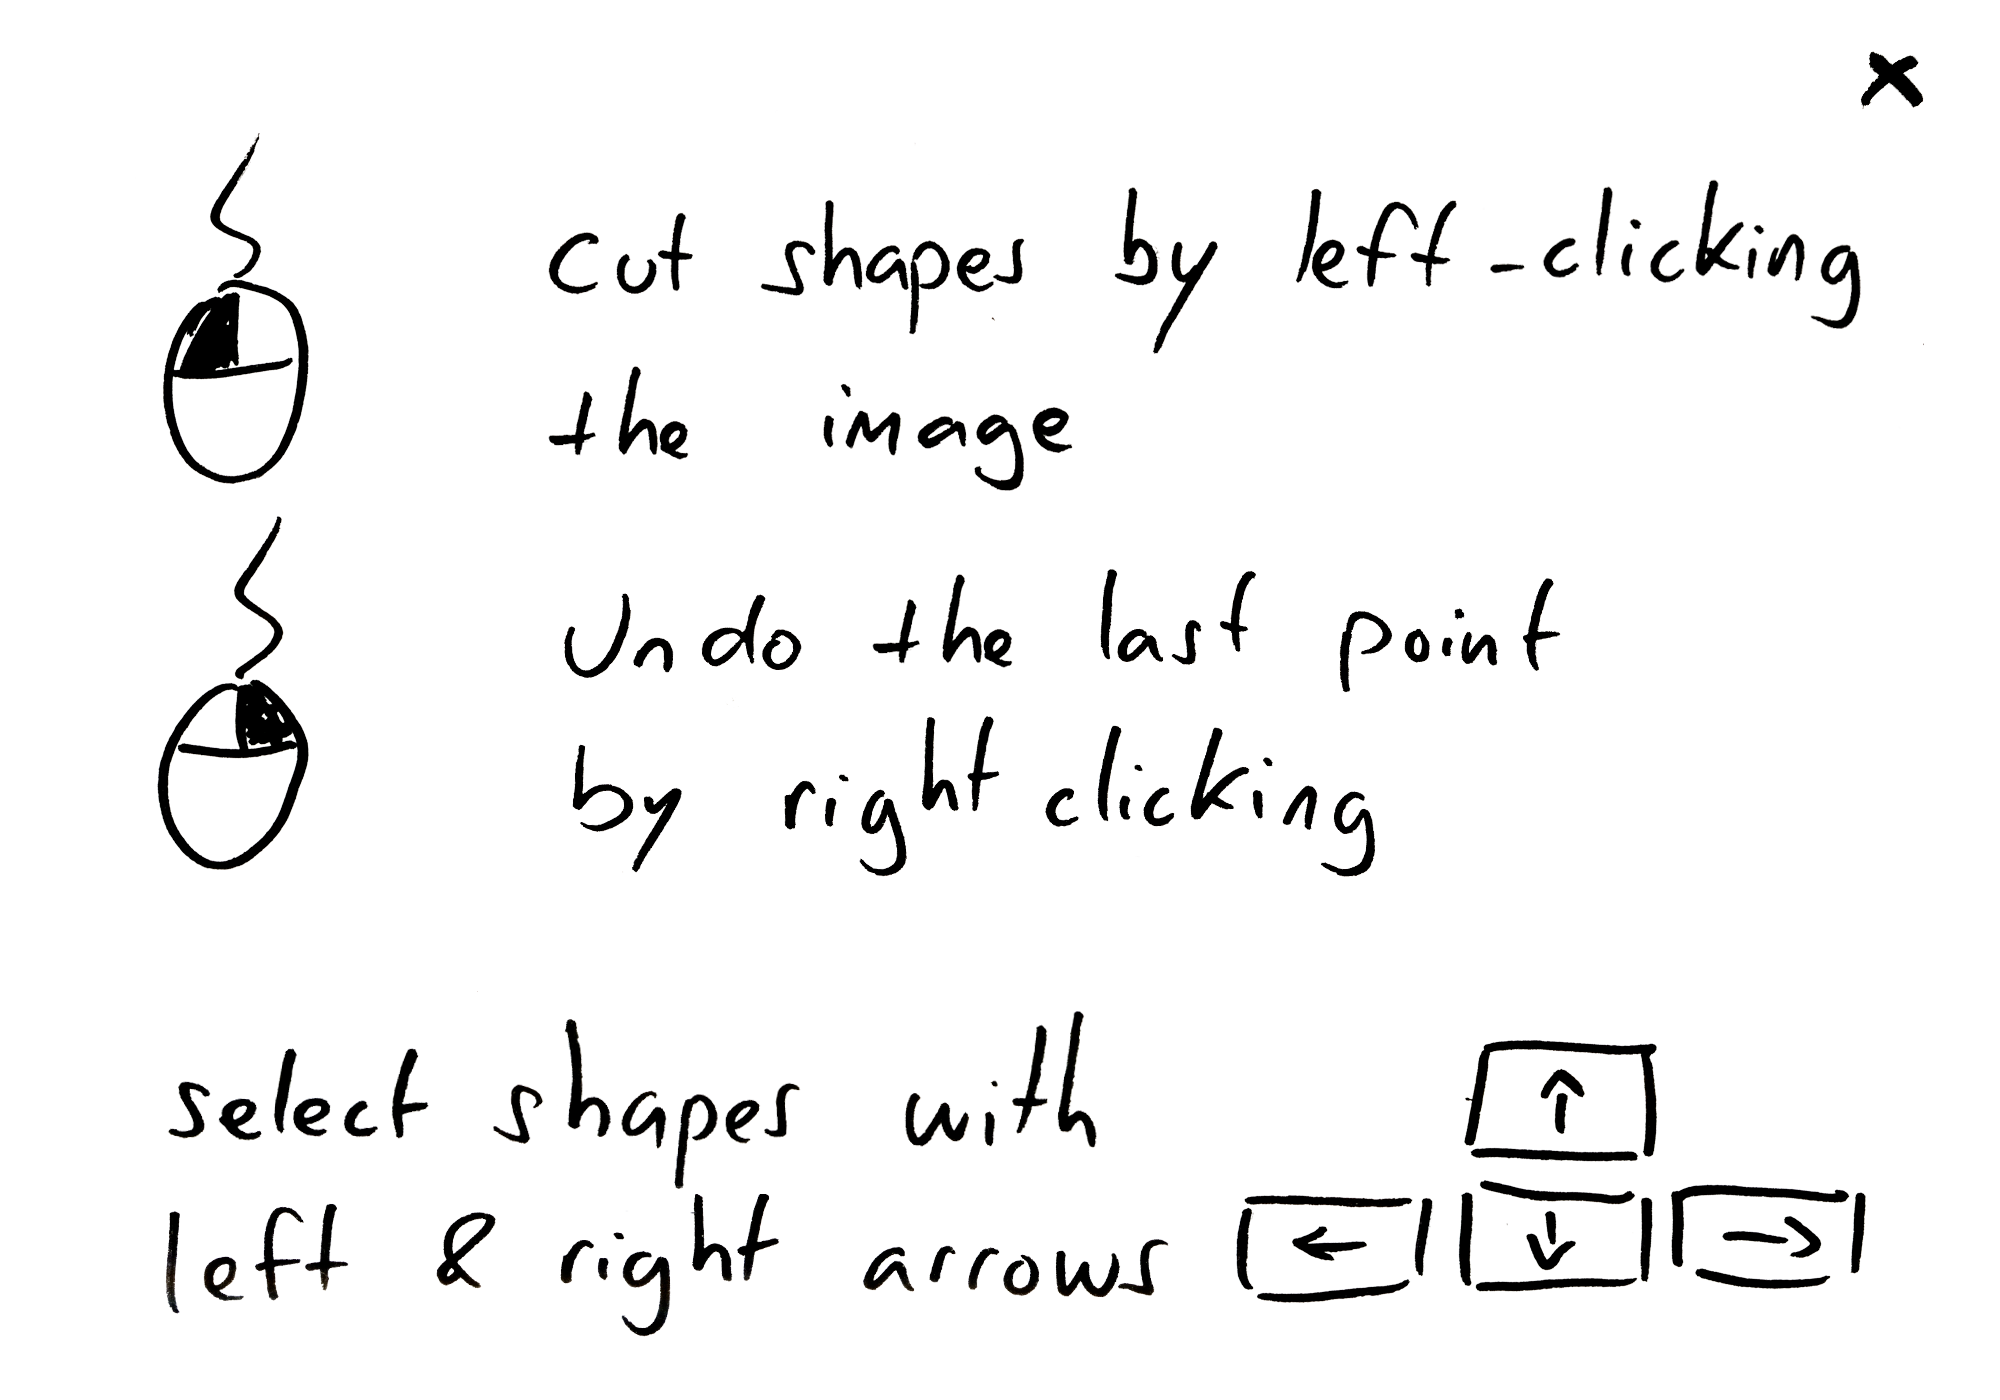 cut shapes by left-clicking
the image
Undo the last point
by right clicking
select shapes with
left & right arrows